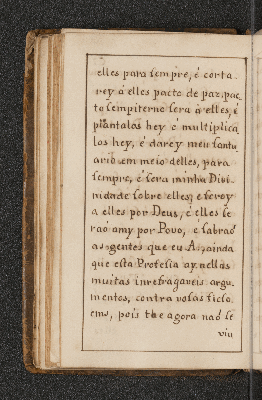 elles para sempre, é corta-
rey á elles pacto de paz, pac
to sempiterno sera á elles, é
plantalos hey é multiplica
los hey, é darey meu santu
ario em meio delles, para
sempre, é sera minha Divi-
nidade sobre elles, é serey
a elles por Deus, é elles se
rao amy por Povo, é sabrao
as gentes que eu A., ainda
que esta Profesia ay nellas
muitas inrefragaveis argu-
mentos, contra vosas ficlo
ems, pois the agora naō se
viu